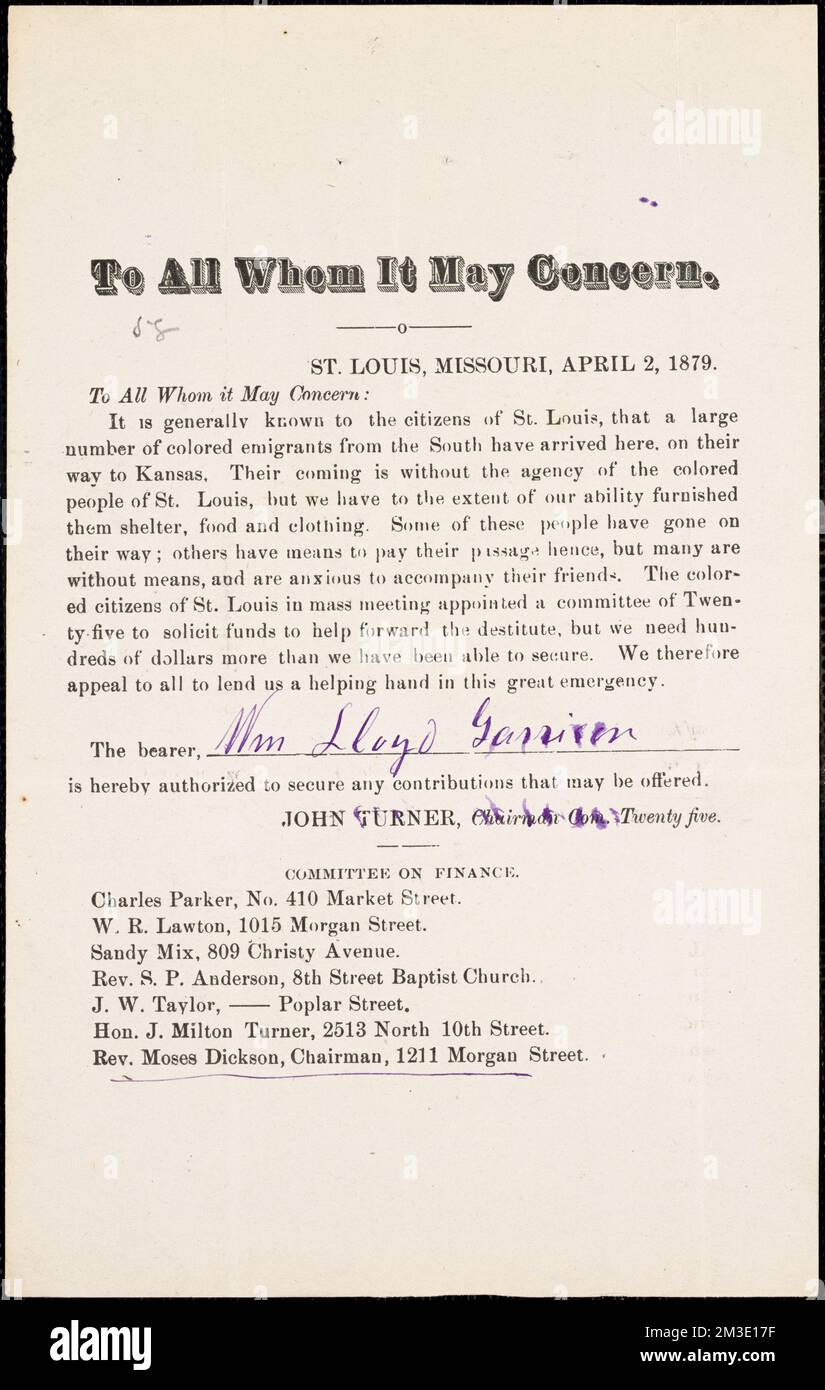 To All Whom It May Concern.
o
ST. LOUIS, MISSOURI, APRIL 2, 1879.
To All Whom it May Concern:
It is generally known to the citizens of St. Louis, that a large
number of colored emigrants from the South have arrived here, on their
way to Kansas. Their coming is without the agency of the colored
people of St. Louis, but we have to the extent of our ability furnished
them shelter, food and clothing. Some of these people have gone on
their way; others have means to pay their passage hence, but many are
without means, and are anxious to accompany their friends. The color-
ed citizens of St. Louis in mass meeting appointed a committee of Twen-
ty-five to solicit funds to help forward the destitute, but we need hun-
dreds of dollars more than we have been able to secure. We therefore
appeal to all to lend us a helping hand in this great emergency.
The bearer, Wm Lloyd Garrison
is hereby authorized to secure any contributions that may be offered.
JOHN TURNER, Chairman Com. Twenty five.
COMMITTEE ON FINANCE.
Charles Parker, No. 410 Market Street.
W. R. Lawton, 1015 Morgan Street.
Sandy Mix, 809 Christy Avenue.
Rev. S. P. Anderson, 8th Street Baptist Church.
J. W. Taylor, —— Poplar Street.
Hon. J. Milton Turner, 2513 North 10th Street.
Rev. Moses Dickson, Chairman, 1211 Morgan Street.
alamy
Image ID: 2M3E17F
www.alamy.com